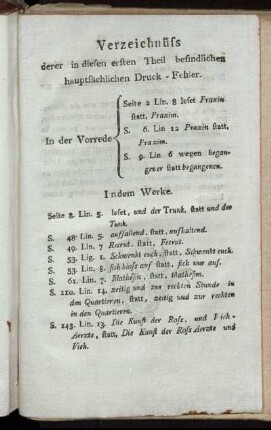 Verzeichnüſs
derer in dieſen erſten Theil befindlichen
hauptſächlichen Druck - Fehler.
Seite 2 Lin. 8 leſet Praxin
ſtatt, Praxim.
S. 6. Lin 12 Praxin ſtatt,
Praxim.
In der Vorrede
S. 9 Lin 6 wegen began-
gener ſtatt begangenen.
Indem Werke.
Seite 8. Lin. 5. leſet, und der Trunk, ſtatt und der
Tunk.
S. 48. Lin. 5. auffallend. ſtatt, aufhaltend.
S. 49. Lin. 7 Recrut. ſtatt, Fecrut.
S. 53. Lig. 1. Schwenkt euch, ſtatt, Schwenkt euch.
S. 53. Lin. 8. ſich bloſs auf ſtatt, ſich nur auf.
S. 61. Lin. 7. Matheſin, ſtatt, Matheſim.
S. 110. Lin. 14. zeitig und zur rechten Stunde in
den Quartieren, ſtatt, zeitig und zur rechten
in den Quartieren.
S. 143. Lin. 13. Die Kunſt der Roſs, und Vieh-
Aerzte, ſtatt, Die Kunſt der Roſs Aerzte und
Vieh.